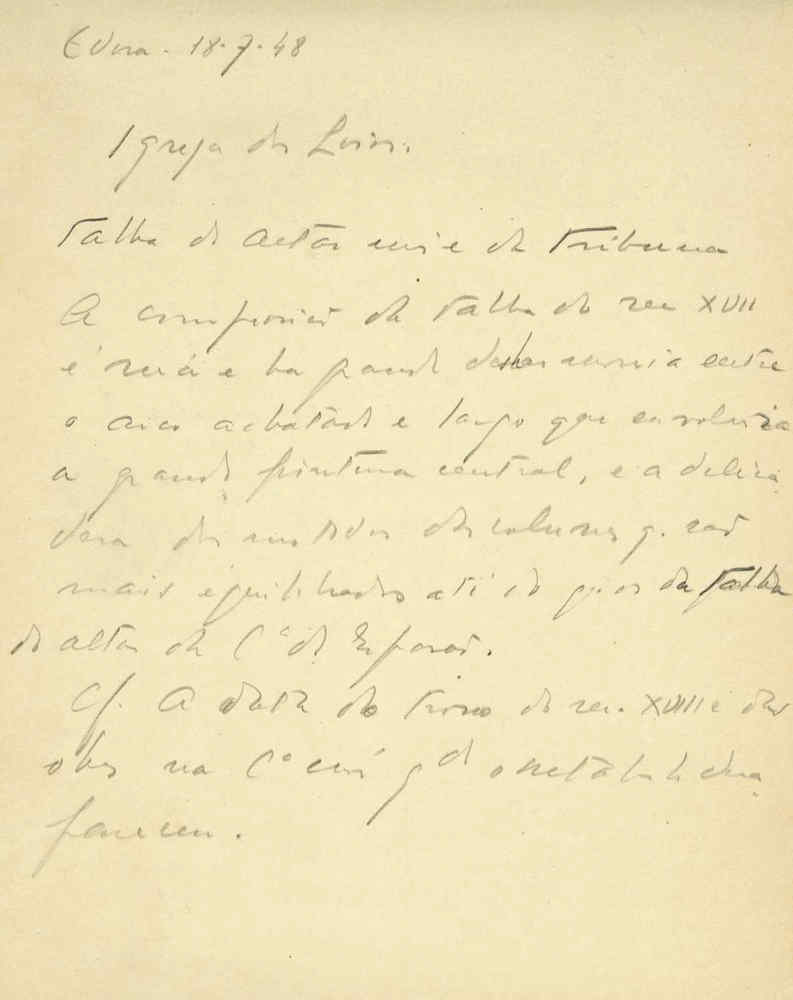 Evora - 18-7-48
Igreja dos Loios.
Talha do altar mór e da tribuna
A composição da talha do sec XVII
é má e ha grande desharmonia entre
o arco achatado e largo que envolveria
a grande pintura central, e a delica-
deza dos das colunas q. são
mais equilibrados até do que os da talha
do altar da C.ª do Esporão.
Cf. A data do trono do sec. XVIII e das
obras na C.ª mór qd o retabulo desa-
pareceu.